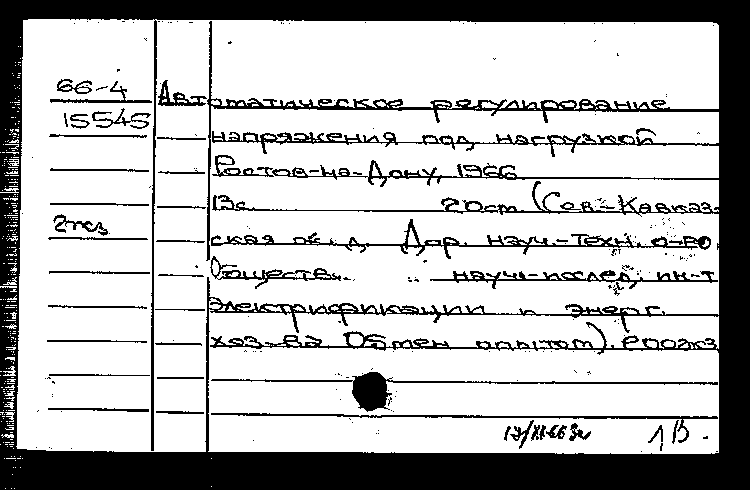 66-4
15545
Автоматическое регулирование
напряжения под нагрузкой
Ростов-на-Дону, 1966
13с. 20см (Сев.-Кавказ-
2экз
ская ж. д. Дор. науч.-техн. о-во.
Обществ. науч.-исслед. ин-т
электрификации и энерг.
хоз-ва Обмен опытом). 200экз
1В.